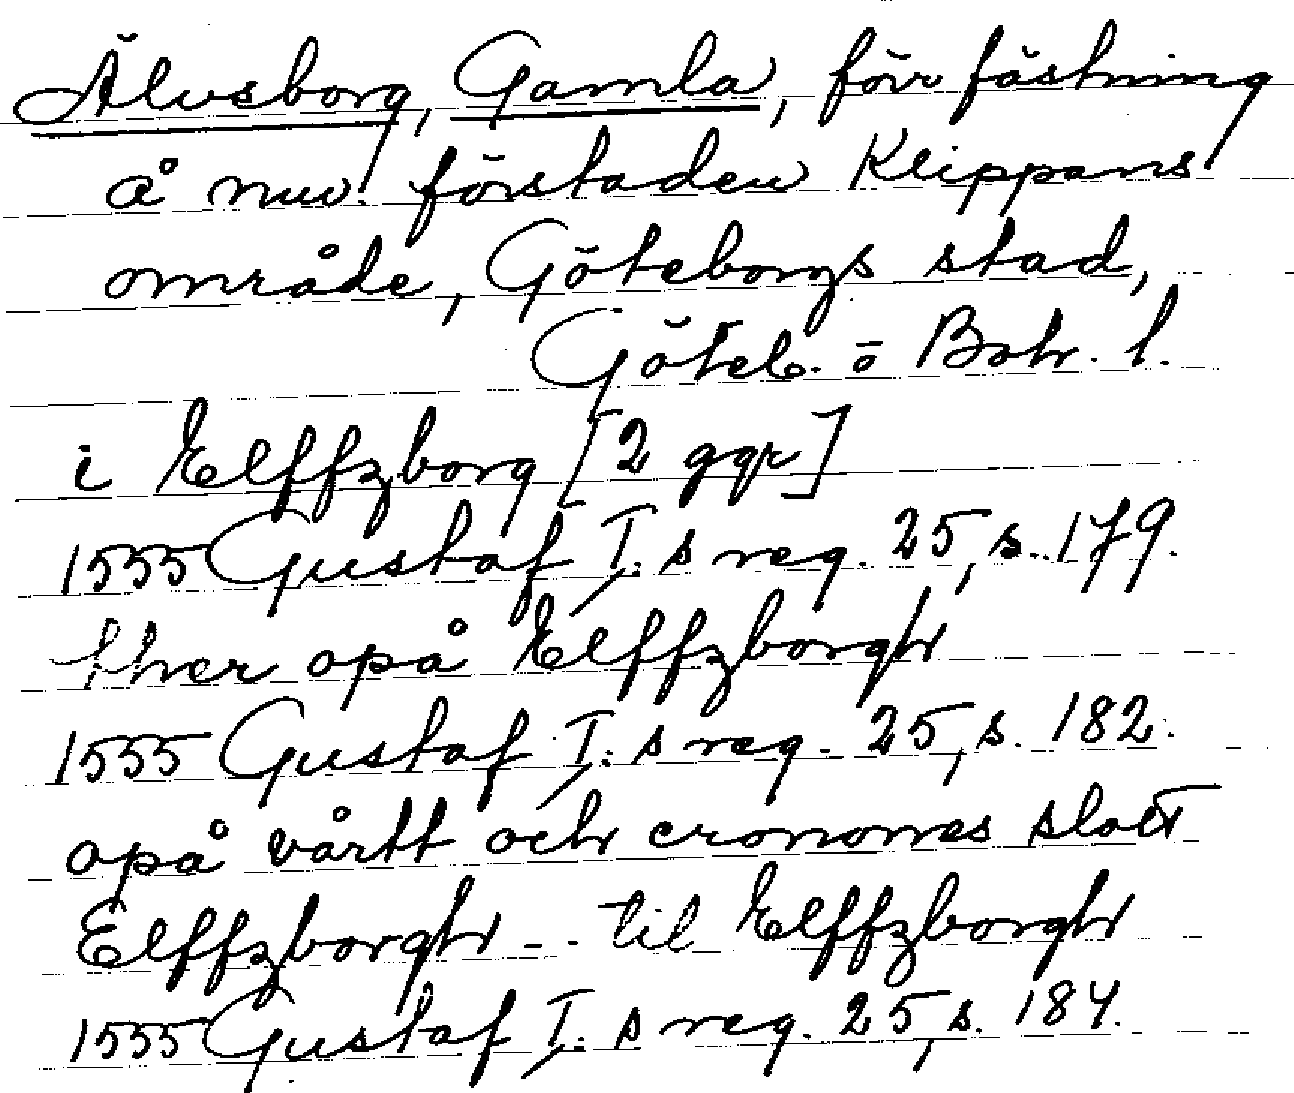 Älvsborg, Gamla, förr fästning
å nuv. förstaden Klippans
område, Göteborgs stad,
Göteb. o Boh. l.
i Elffzborg [2 ggr]
1555 Gustaf I: s reg. 25, s. 179.
ther opå Elffzborgh
1555 Gustaf I: s reg. 25, s. 182.
opå vårtt och cronones slott
Elffzborgh -- til Elffzborgh
1555 Gustaf I: s reg. 25, s. 184.